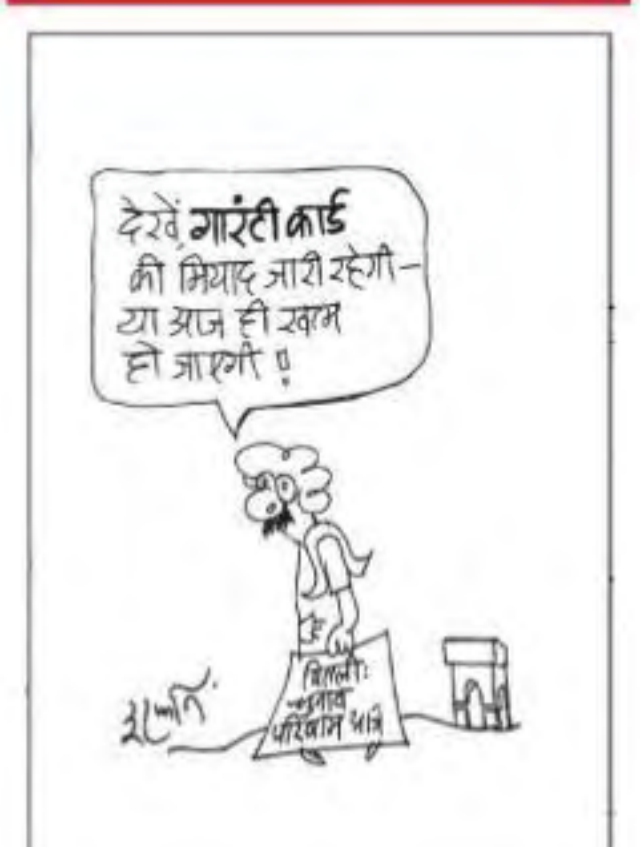 देखें, गारंटी कार्ड
की मियाद जारी रहेगी–
या आज ही खत्म
हो जाएगी !
दिल्ली:
चुनाव
परिणाम आज